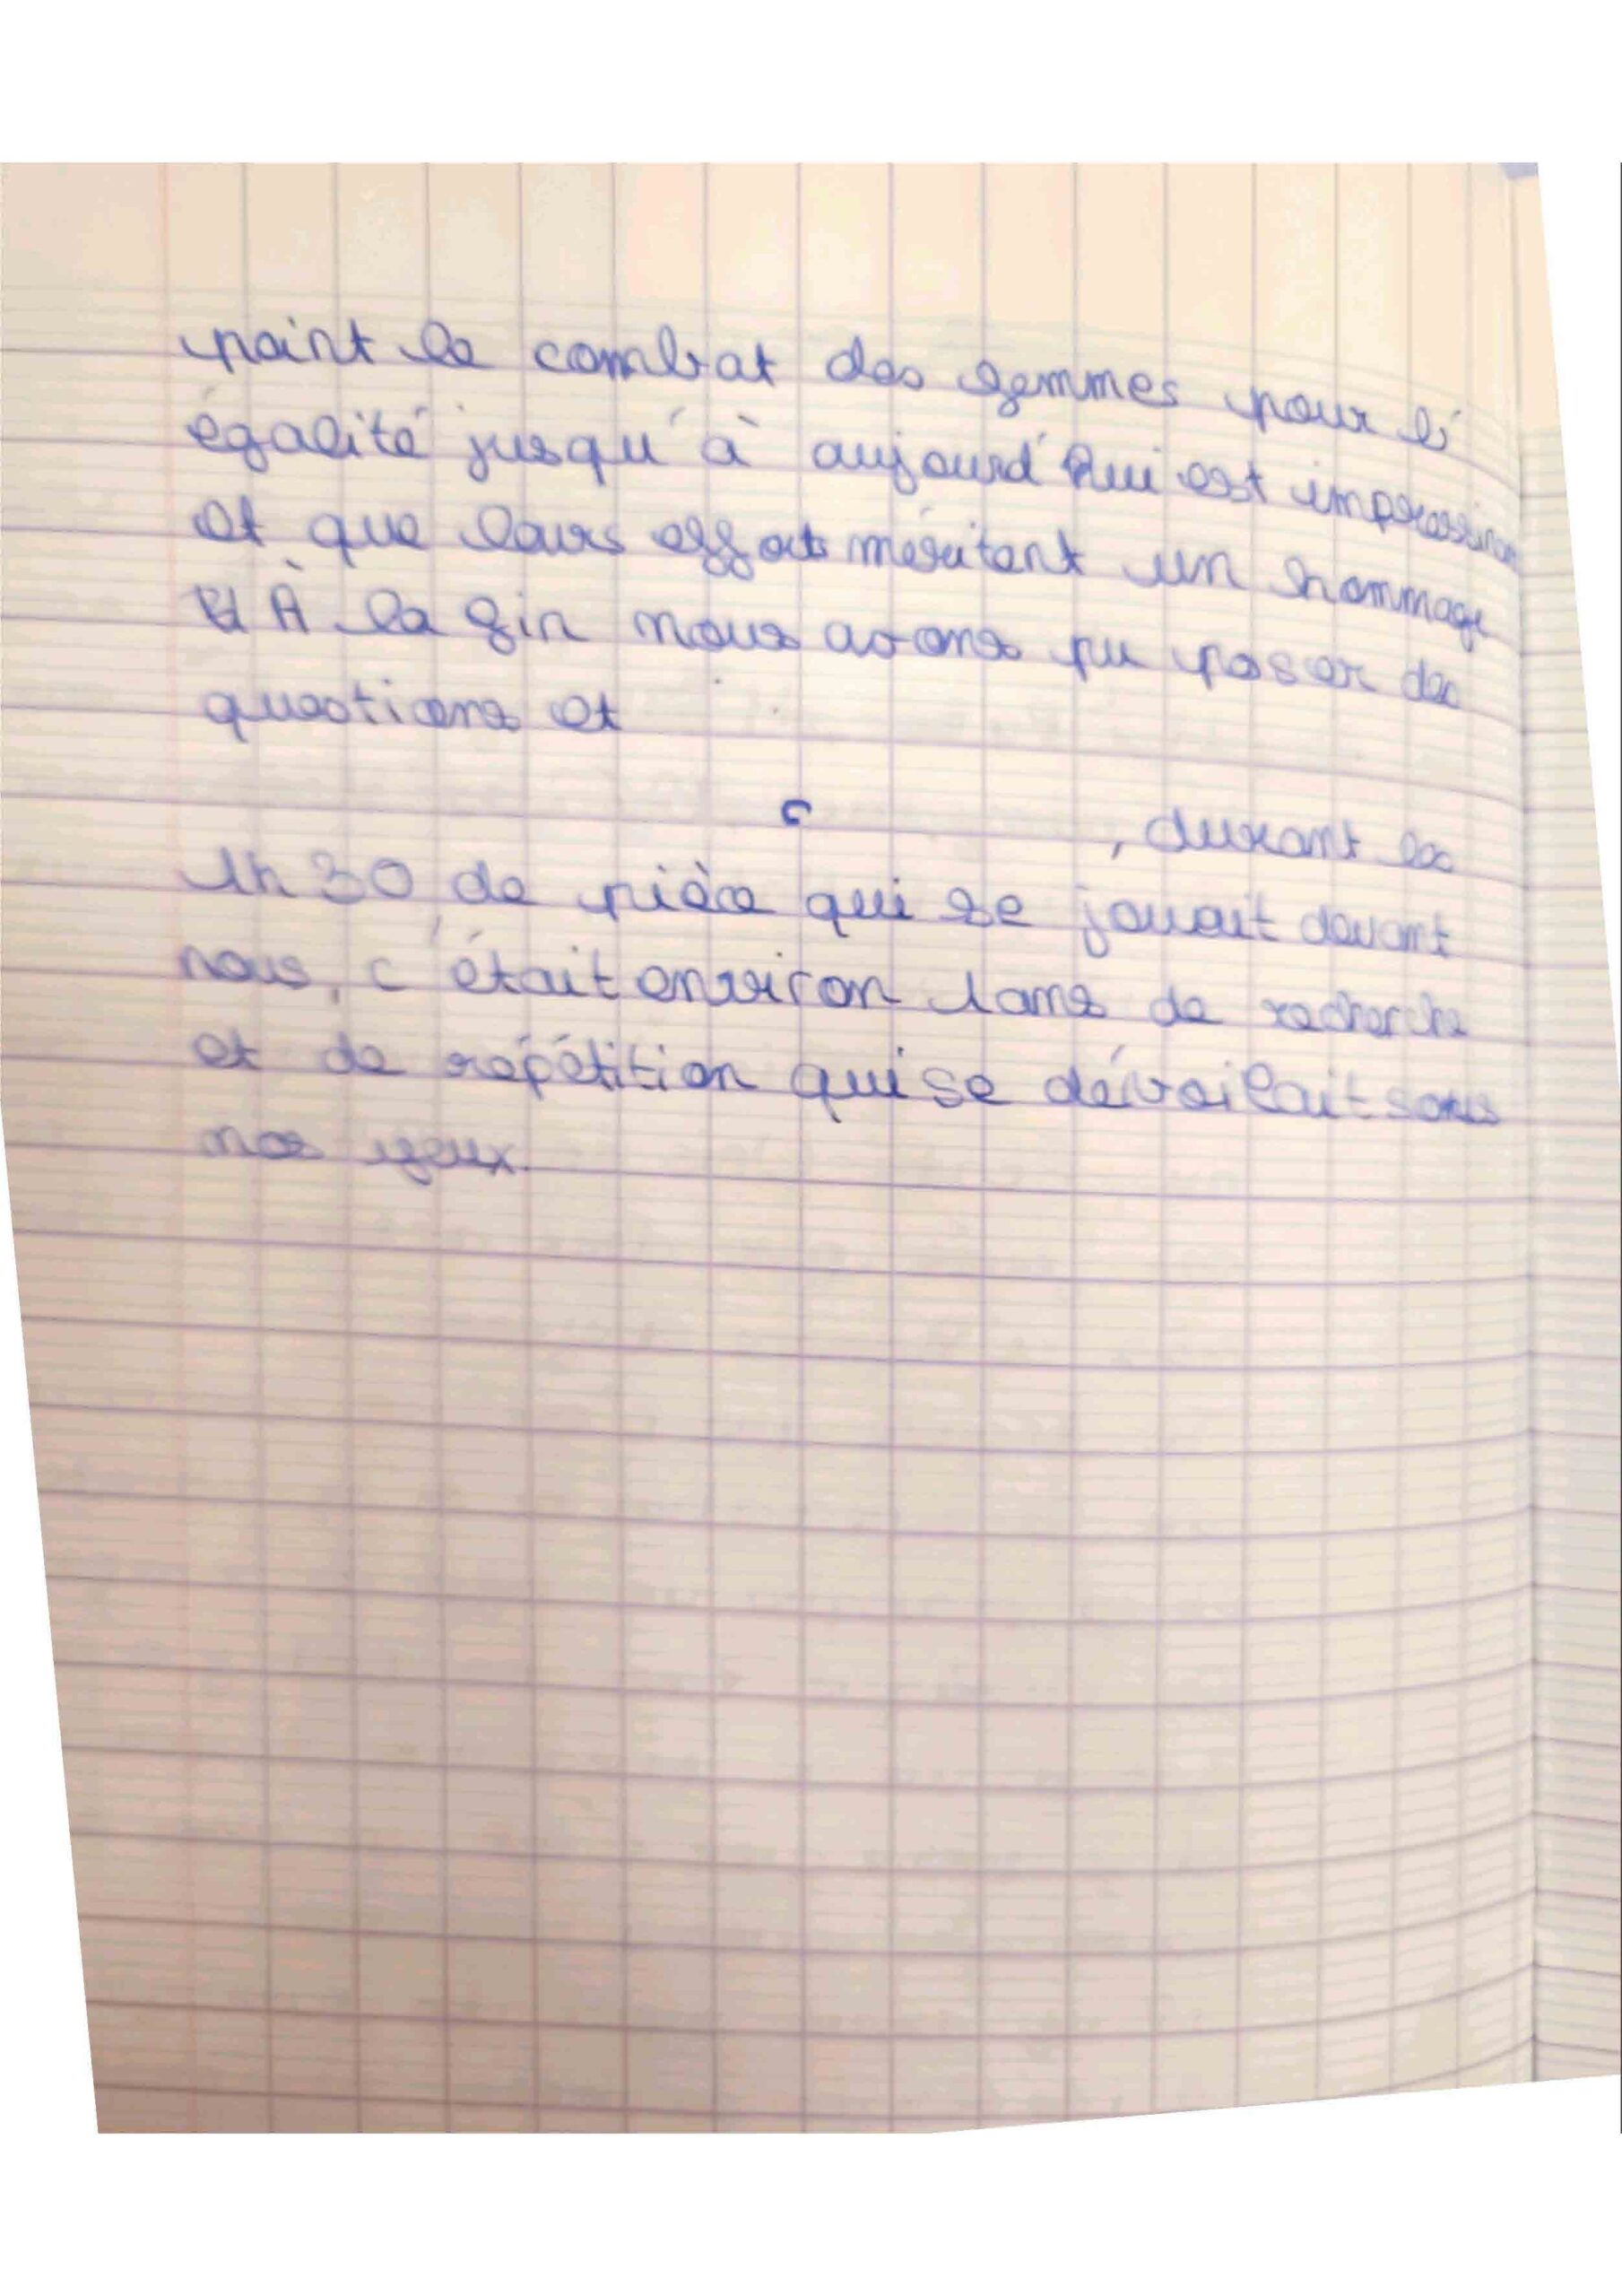 point le combat des femmes pour l'
égalité jusqu'à aujourd'hui est impression
et que leurs efforts méritent un hommage
À la fin nous avons pu poser des
questions et
c , durant les
1h30 de pièce qui se jouait devant
nous, c'était environ 1 ans de recherche
et de répétition qui se dévoilait sous
nos yeux.